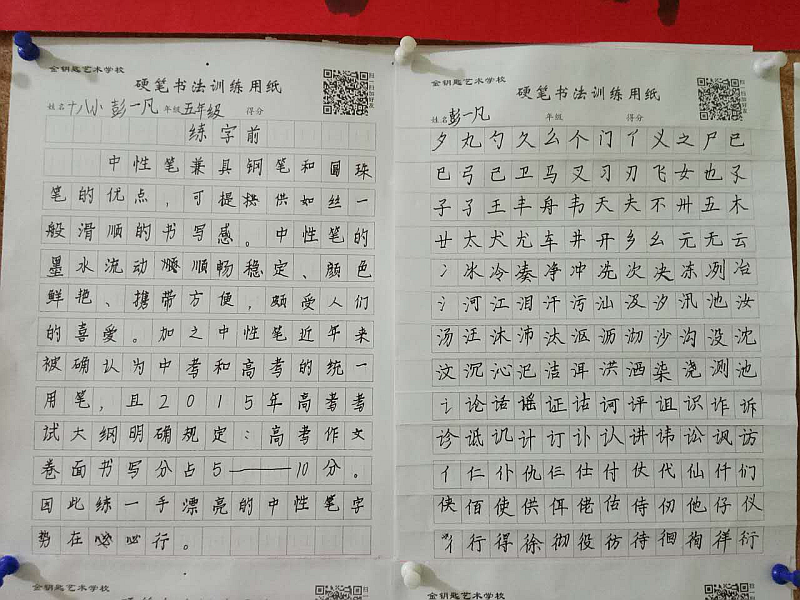 金钥匙艺术学校
硬笔书法训练用纸
姓名十八小 彭一凡 年级五年级 得分
练字前
中性笔兼具钢笔和圆珠
笔的优点，可提供如丝一
般滑顺的书写感。中性笔的
墨水流动顺畅稳定、颜色
鲜艳、携带方便，颇受人们
的喜爱。加之中性笔近年来
被确认为中考和高考的统一
用笔，且2015年高考考
试大纲明确规定：高考作文
卷面书写分占5——10分。
因此练一手漂亮的中性笔字
势在必行。
金钥匙艺术学校
金钥匙艺术学校
硬笔书法训练用纸
姓名彭一凡 年级 得分
夕丸勺久么个门丫义之尸巳
已弓己卫马叉习刃飞女也孑
子孓王丰舟韦天夫不卅五木
廿太犬尤车井开乡幺元无云
冫冰冷凑净冲冼次决冻冽冶
氵河江泪汗污汕汲汐汛池汝
汤汪沐沛汰沤沥沏沙沟没沈
汶沉沁汜洁洱洪洒染浇测池
讠论话谣证诂诃评诅识诈诉
诊诋讥计订讣认讲讳讼讽访
亻仁仆仇仨仕付仗代仙仟们
侠佰使供佴佬估侍仞他仔仪
彳行得徐彻役彷待徊徇徉衍
金钥匙艺术学校